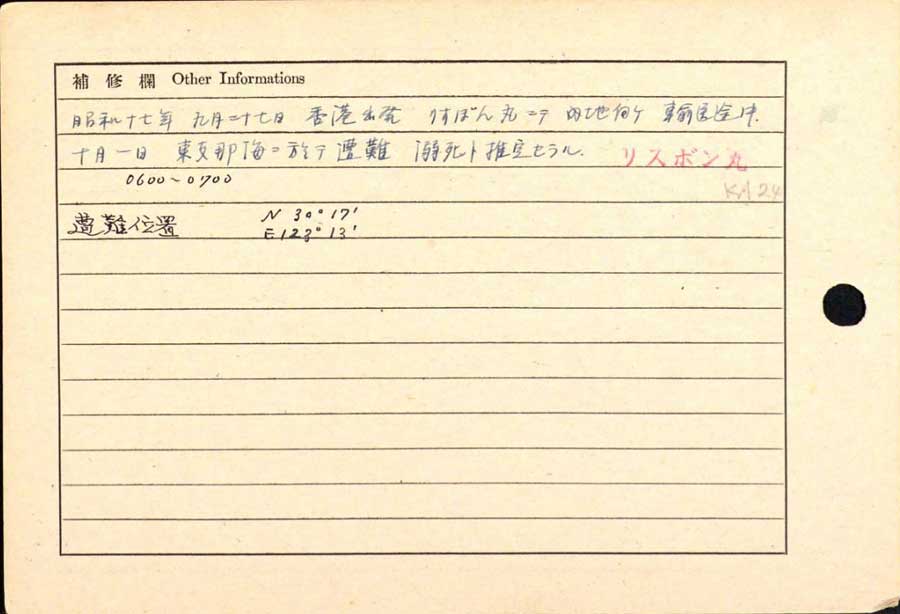 補修欄 Other Informations
昭和十七年 九月二十七日 香港出発 りすぼん丸ニテ 内地向ケ 輸送途中.
十月一日 東支那海ニ於テ遭難 溺死ト推定セラル. リスボン丸
0600~0700
KA 24
遭難位置 N 30° 17'
E 123° 13'